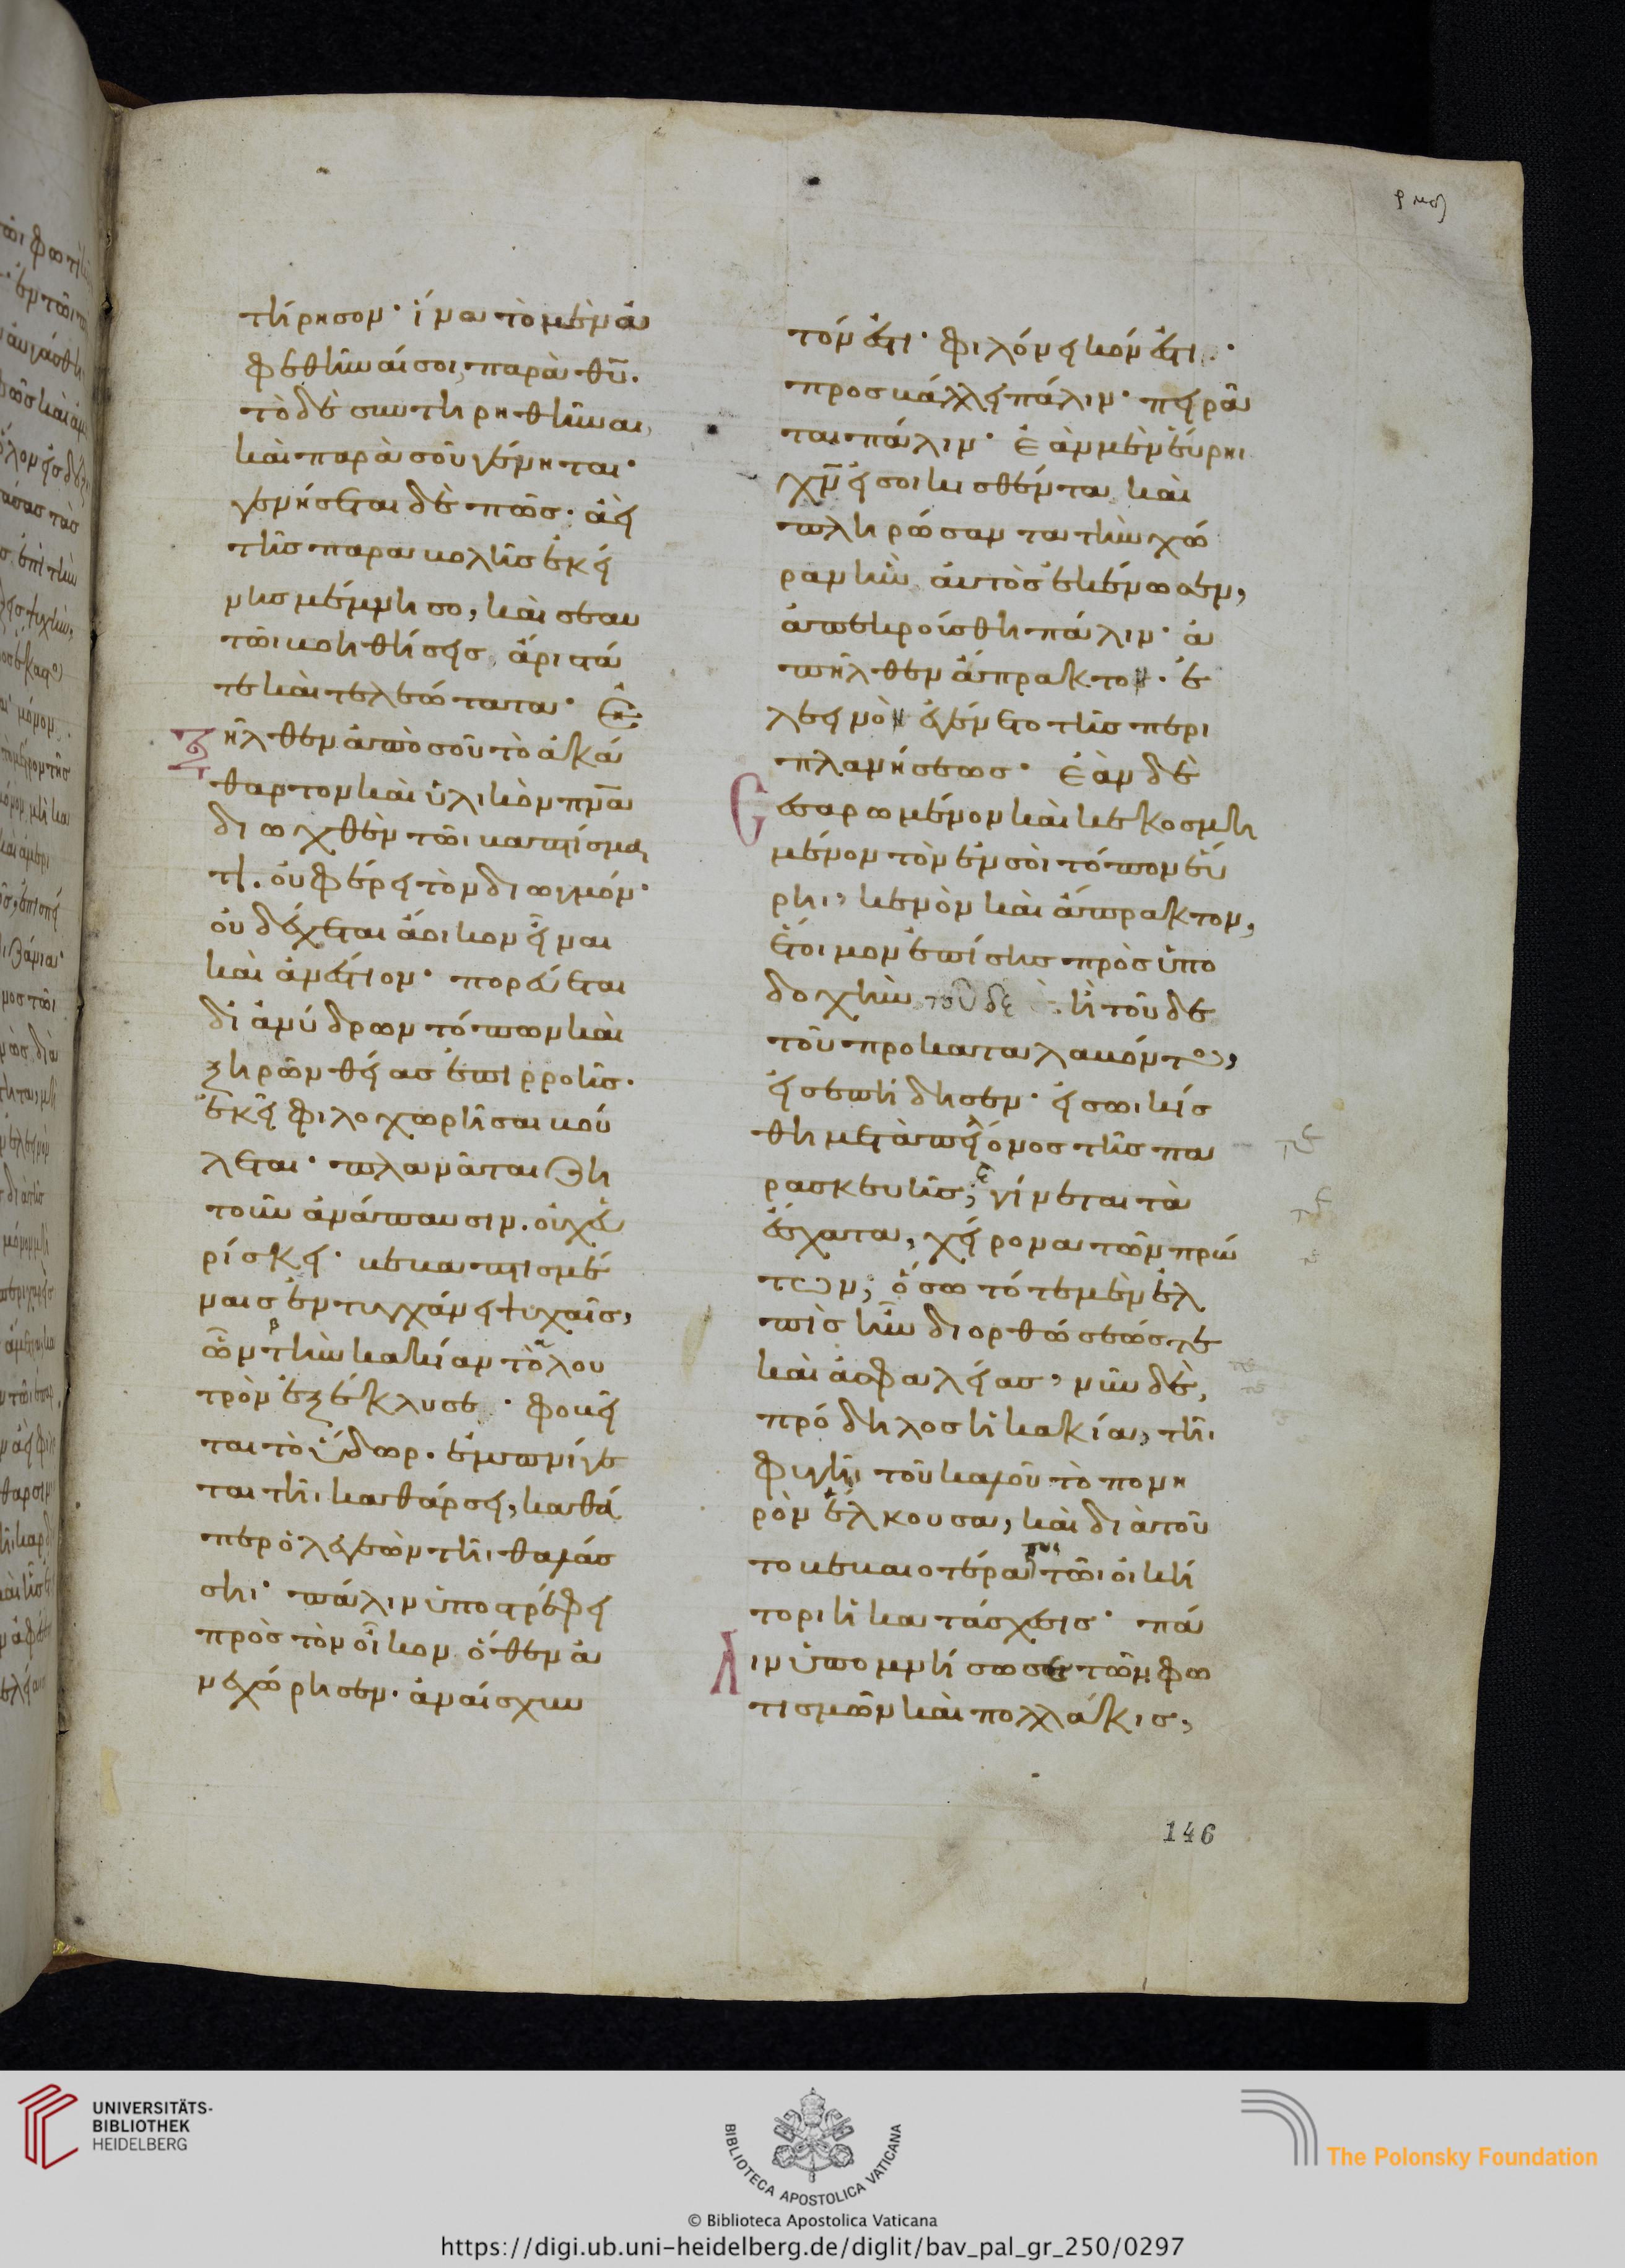 τήρησον· ἵνα τὸ μὲν ἀ
φεθῆναί σοι, παρὰ θῡ.
τὸ δὲ συντηρηθῆναι,
καὶ παρὰ σοῦ γένηται·
γενήσεται δὲ πῶσ· ἀεὶ
τῆσ παραβολῆσ ἐκεί
νησ μέμνησο, καὶ σεαυ
τῶι βοηθήσεισ ἄριστά
τε καὶ τελεώτατα· Ἐ
ξῆλθεν ἀπὸ σοῦ τὸ ἀκά
θαρτον καὶ ὑλικὸν πνᾱ
διωχθὲν τῶι βαπτίσμα
τι. οὐ φέρει τὸν διωγμόν·
οὐ δέχεται ἄοικον εἶναι
καὶ ἀνέστιον· πορεύεται
δι ἀνύδρων τόπων καὶ
ξηρῶν θείασ ἐπιρροῆσ.
ἐκεῖ φιλοχωρῆσαι βού
λεται· πλανᾶται ζη
τοῦν ἀνάπαυσιν. οὐχ εὑ
ρίσκει· βεβαπτισμέ
ναισ ἐντυγχάνει ψυχαῖσ,
ὧν τὴν κακίαν τὸ λου
τρὸν ἐξέκλυσε· φοβεῖ
ται τὸ ὕδωρ. ἐμπνίγε
ται τῆι καθάρσει, καθά
περ ὁ λεγεὼν τῆι θαλάσ
σηι· πάλιν ὑποστρέφει
πρὸσ τὸν οἶκον ὅθεν ἀ
νεχώρησεν. ἀναίσχυν
ρμϛ
τόν ἐστι· φιλόνεικόν ἐστι·
προσβάλλει πάλιν· πειρᾶ
ται πάλιν· ἐὰν μὲν εὕρηι
χν̄ εἰσοικισθέντα καὶ
πληρώσαντα τὴν χώ
ραν ἣν αὐτὸσ ἐκένωσεν,
ἀπεκρούσθη πάλιν· ἀ
πῆλθεν ἄπρακτον· ἐ
λεεινὸν ἐγένετο τῆσ περι
πλανήσεωσ· ἐὰν δὲ
σεσαρωμένον καὶ κεκοσμη
μένον τὸν ἐν σοὶ τόπον εὕ
ρηι, κενὸν καὶ ἄπρακτον,
ἕτοιμον ἐπίσησ πρὸσ ὑπο
δοχὴν τοῦδε ἢ τοῦδε
τοῦ προκαταλαβόντοσ,
εἰσεπήδησεν· εἰσωικίσ
θη μετὰ πλείονοσ τῆσ πα
ρασκευῆσ, γίνεται τὰ
ἔσχατα, χείρονα τῶν πρώ
των, ὅσω τότε μὲν ἐλ
πὶσ ἦν διορθώσεώσ τε
καὶ ἀσφαλείασ, νῦν δὲ,
πρόδηλοσ ἡ κακία, τῆι
φυγῆι τοῦ καλοῦ τὸ πονη
ρὸν ἕλκουσα, καὶ διὰ τοῦ
το βεβαιοτέρα τῶι οἰκή
τορι ἡ κατάσχεσισ· πά
λιν ὑπομνήσω σε τῶν φω
τισμῶν καὶ πολλάκισ,
146
UNIVERSITÄTS-
BIBLIOTHEK
HEIDELBERG
BIBLIOTECA APOSTOLICA VATICANA
The Polonsky Foundation
© Biblioteca Apostolica Vaticana
https://digi.ub.uni-heidelberg.de/diglit/bav_pal_gr_250/0297